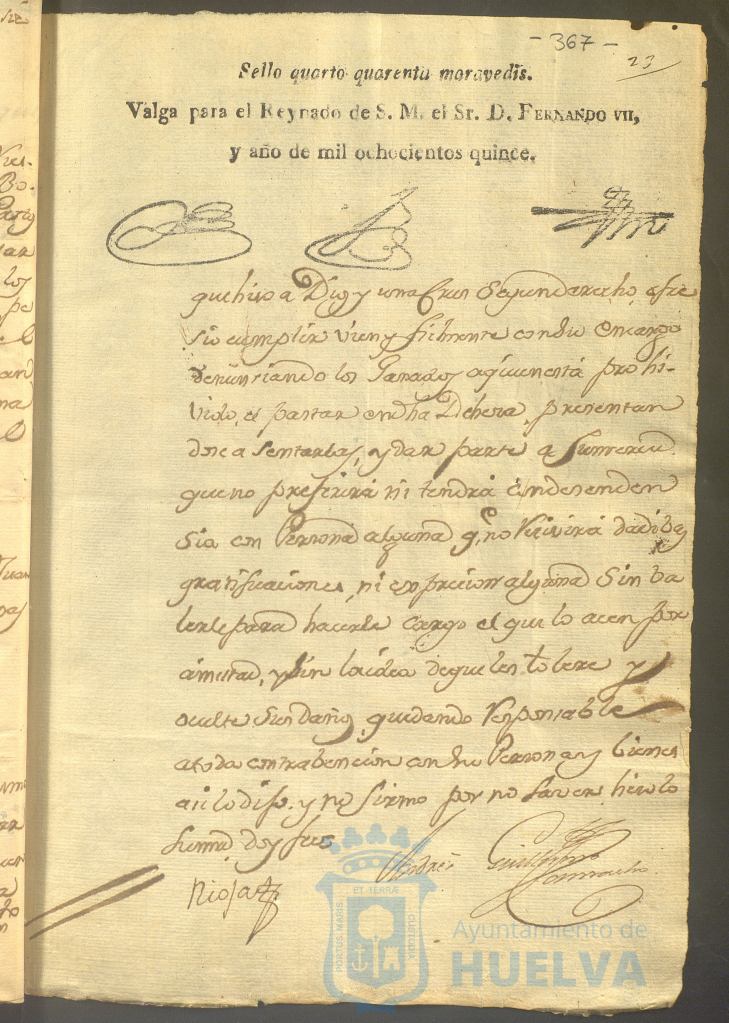 - 367 -
23
Sello quarto quarenta maravedis.
Valga para el Reynado de S. M. el Sr. D. FERNANDO VII,
y año de mil ochocientos quince.
que hiso a Dios y una Cruz segun derecho, ofre
sio cumplir vien y fielmente con su encargo
denunsiando los Ganados a quienes está prohi-
vido, el pastar en dha Dehesa, presentan
dose a sentarlas, y dar parte a su merced
que no preferirá ni tendrá condesenden
sia con Persona alguna q.e no Recivirá dadibas
gratificaciones, ni expresion alguna sin ba
lerle para hacerle cargo el que lo acen por
amistad, y sin la idea de que les tolere y
oculte sus daños, quedando Responsable
a toda contrabencion con su Persona y bienes
asi lo dijo, y no firmo por no saver, hisolo
su md. doy fee
Rioja
Guillermo
Camacho
PORTUS MARIS ET TERRÆ CUSTODIA
Ayuntamiento de
HUELVA